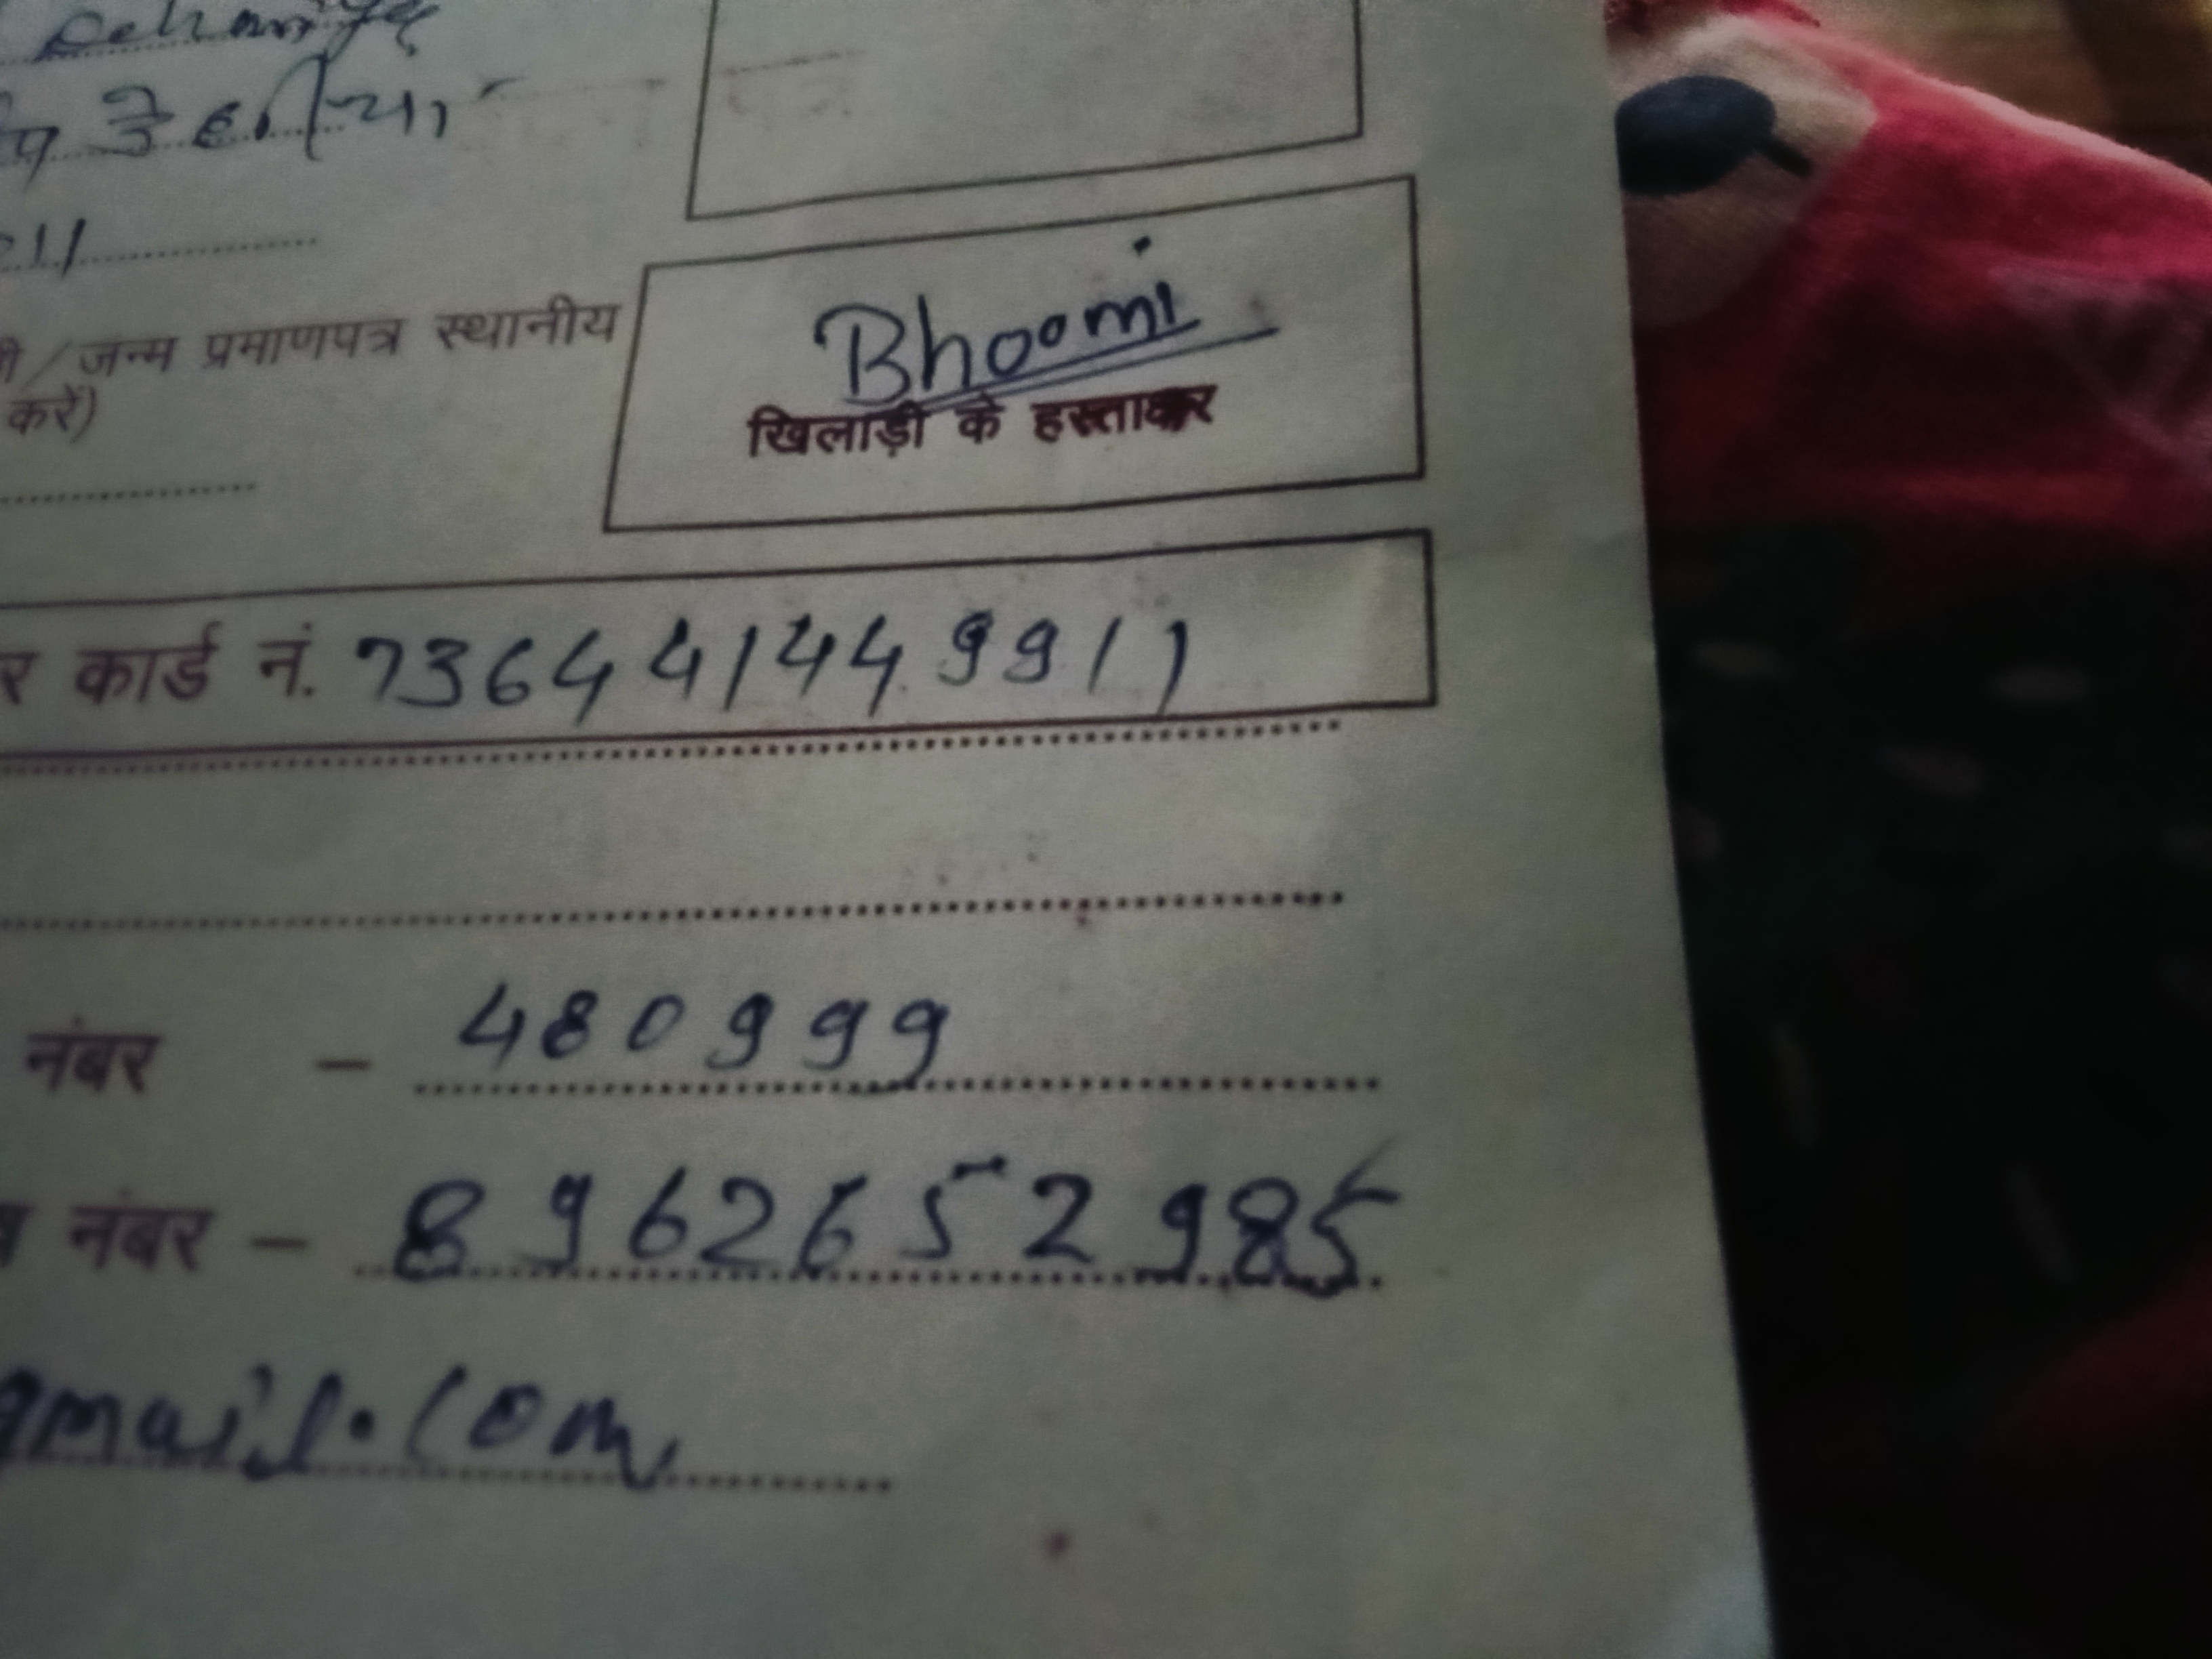 Dehariya
डेहरिया
जन्म प्रमाणपत्र स्थानीय
करें)
Bhoomi
खिलाड़ी के हस्ताक्षर
र कार्ड नं. 736441449911
नंबर - 480999
नंबर - 8962652985
gmail.com